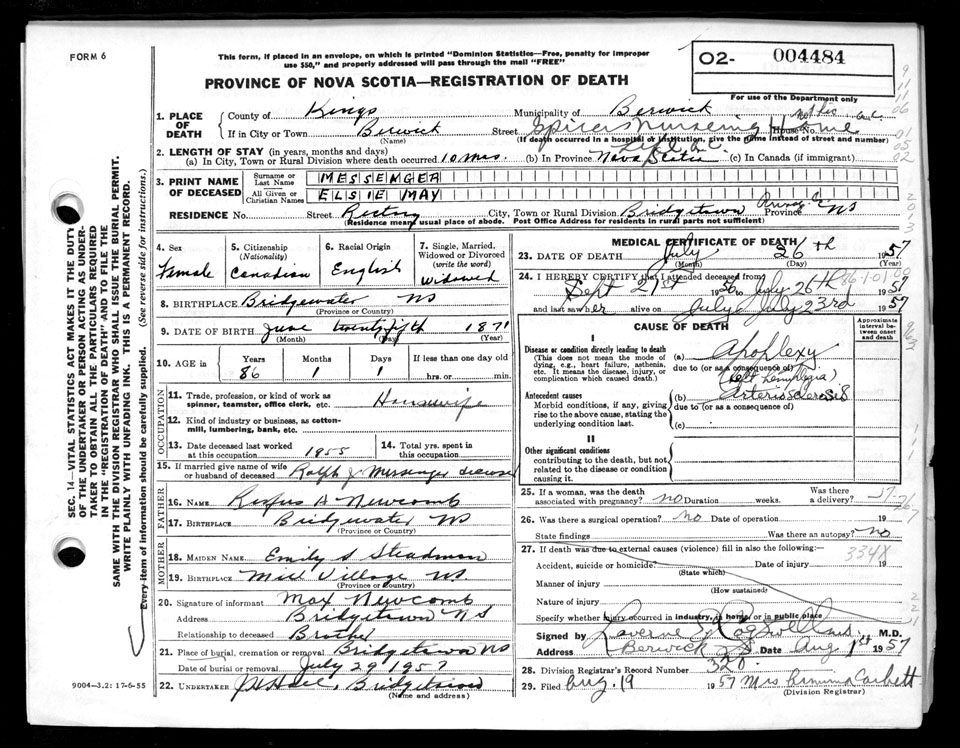 FORM 6
This form, if placed in an envelope, on which is printed "Dominion Statistics—Free, penalty for improper
use $50," and properly addressed will pass through the mail "FREE"
O2- 004484
PROVINCE OF NOVA SCOTIA—REGISTRATION OF DEATH
For use of the Department only
1. PLACE OF DEATH
County of Kings Municipality of Berwick
If in City or Town Berwick Street Spicers Nursing Home House No.
(Name) (If death occurred in a hospital or institution, give the name instead of street and number)
2. LENGTH OF STAY (in years, months and days)
(a) In City, Town or Rural Division where death occurred 10 mos. (b) In Province Nova Scotia (c) In Canada (if immigrant)
3. PRINT NAME OF DECEASED
Surname or Last Name MESSENGER
All Given or Christian Names ELSIE MAY
RESIDENCE No. Street City, Town or Rural Division Bridgetown Province NS
(Residence means usual place of abode. Post Office Address for residents in rural parts not sufficient)
4. Sex Female
5. Citizenship (Nationality) Canadian
6. Racial Origin English
7. Single, Married, Widowed or Divorced (write the word) Widowed
8. BIRTHPLACE Bridgewater NS
(Province or Country)
9. DATE OF BIRTH June twenty fifth 1871
(Month) (Day) (Year)
10. AGE in Years 86 Months 1 Days 1 If less than one day old hrs. or min.
OCCUPATION
11. Trade, profession, or kind of work as spinner, teamster, office clerk, etc. Housewife
12. Kind of industry or business, as cotton-mill, lumbering, bank, etc.
13. Date deceased last worked at this occupation 1955
14. Total yrs. spent in this occupation
15. If married give name of wife or husband of deceased Ralph J Messenger
FATHER
16. NAME Rufus A Newcomb
17. BIRTHPLACE Bridgewater NS
(Province or Country)
MOTHER
18. MAIDEN NAME Emily S Steadman
19. BIRTHPLACE Mill Village NS.
(Province or Country)
20. Signature of informant Max Newcomb
Address Bridgetown NS
Relationship to deceased Brother
21. Place of burial, cremation or removal Bridgetown NS
Date of burial or removal July 29 1957
22. UNDERTAKER Bridgetown
(Name and address)
9004—3.2: 17-6-55
MEDICAL CERTIFICATE OF DEATH
23. DATE OF DEATH July 26th 1957
(Month) (Day) (Year)
24. I HEREBY CERTIFY that I attended deceased from
Sept 21st 1956 to July 26th 1957
and last saw her alive on July 23rd 1957
CAUSE OF DEATH
Approximate interval between onset and death
I
Disease or condition directly leading to death
(This does not mean the mode of dying, e.g., heart failure, asthenia, etc. It means the disease, injury, or complication which caused death.)
(a) Apoplexy
due to (or as a consequence of)
(left hemiplegia)
Antecedent causes
Morbid conditions, if any, giving rise to the above cause, stating the underlying condition last.
(b) Arteriosclerosis
due to (or as a consequence of)
(c)
II
Other significant conditions
contributing to the death, but not related to the disease or condition causing it.
25. If a woman, was the death associated with pregnancy? no Duration weeks. Was there a delivery?
26. Was there a surgical operation? no Date of operation 19
State findings Was there an autopsy? no
27. If death was due to external causes (violence) fill in also the following:—
334X
Accident, suicide or homicide? Date of injury 19
(State which)
Manner of injury
(How sustained)
Nature of injury
Specify whether injury occurred in industry, in home, or in public place
Signed by M.D.
Address Berwick NS Date Aug 1st 1957
28. Division Registrar's Record Number 320.
29. Filed Aug. 19 1957 Mrs
(Division Registrar)
SEC. 14—VITAL STATISTICS ACT MAKES IT THE DUTY
OF THE UNDERTAKER OR PERSON ACTING AS UNDER-
TAKER TO OBTAIN ALL THE PARTICULARS REQUIRED
IN THE "REGISTRATION OF DEATH" AND TO FILE THE
SAME WITH THE DIVISION REGISTRAR WHO SHALL ISSUE THE BURIAL PERMIT.
WRITE PLAINLY WITH UNFADING INK. THIS IS A PERMANENT RECORD.
Every item of information should be carefully supplied. (See reverse side for instructions.)